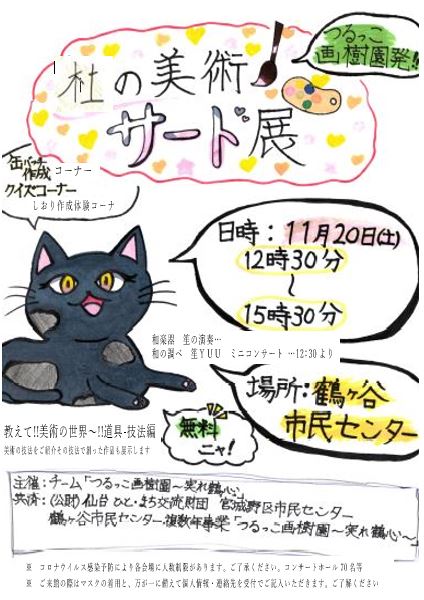 つるっこ
画樹園発!!
杜の美術
サード展
缶バッチ
作成コーナー
クイズコーナー
しおり作成体験コーナ
日時：11月20日(土)
12時30分
～
15時30分
和楽器 笙の演奏…
和の調べ 笙YUU ミニコンサート …12:30より
場所：鶴ヶ谷
市民センター
無料
ニャ!
教えて!!美術の世界～!!道具・技法編
美術の技法をご紹介その技法で創った作品も展示します
主催：チーム「つるっこ画樹園～実れ鶴心」
共済：(公財)仙台ひと・まち交流財団 宮城野区市民センター
鶴ヶ谷市民センター複数年事業「つるっこ画樹園～実れ鶴心～」
※ コロナウイルス感染予防により各会場に人数制限があります。ご了承ください。コンサートホール70名等
※ ご来館の際はマスクの着用と、万が一に備えて個人情報・連絡先を受付でご記入いただきます。ご了解ください